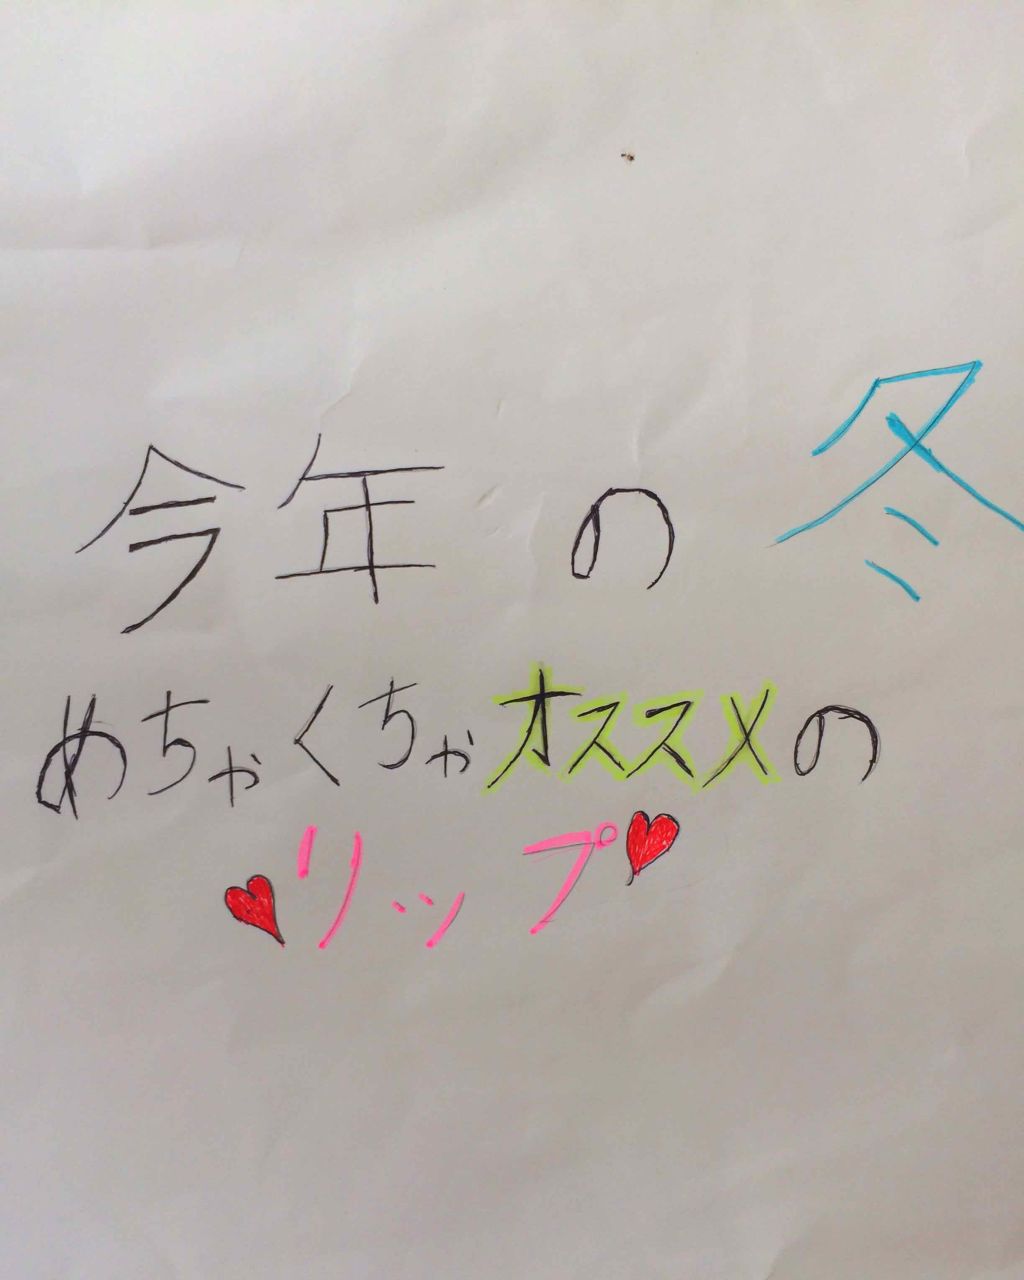 今年の冬
めちゃくちゃオススメの
リップ